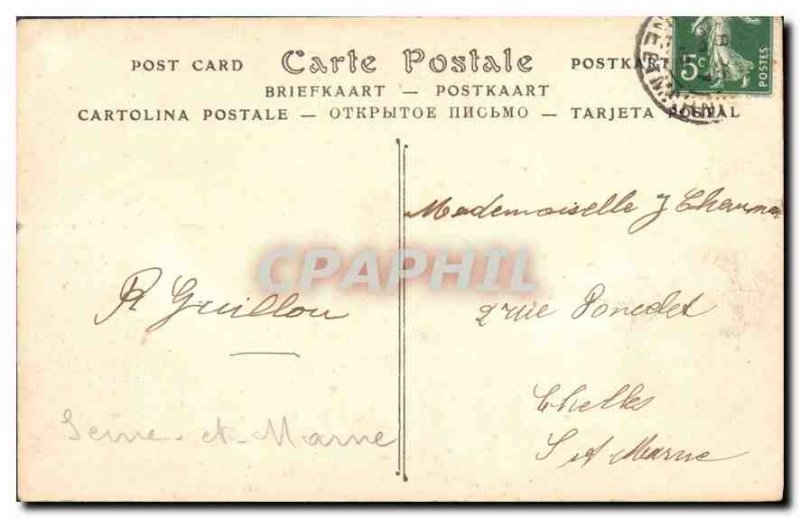 POST CARD Carte Postale POSTKART
BRIEFKAART — POSTKAART
CARTOLINA POSTALE — ОТКРЫТОЕ ПИСЬМО — TARJETA POSTAL
5c POSTES
Mademoiselle J
CPAPHIL
R Guillou
2 rue
Chelles
S et Marne
Seine-et-Marne